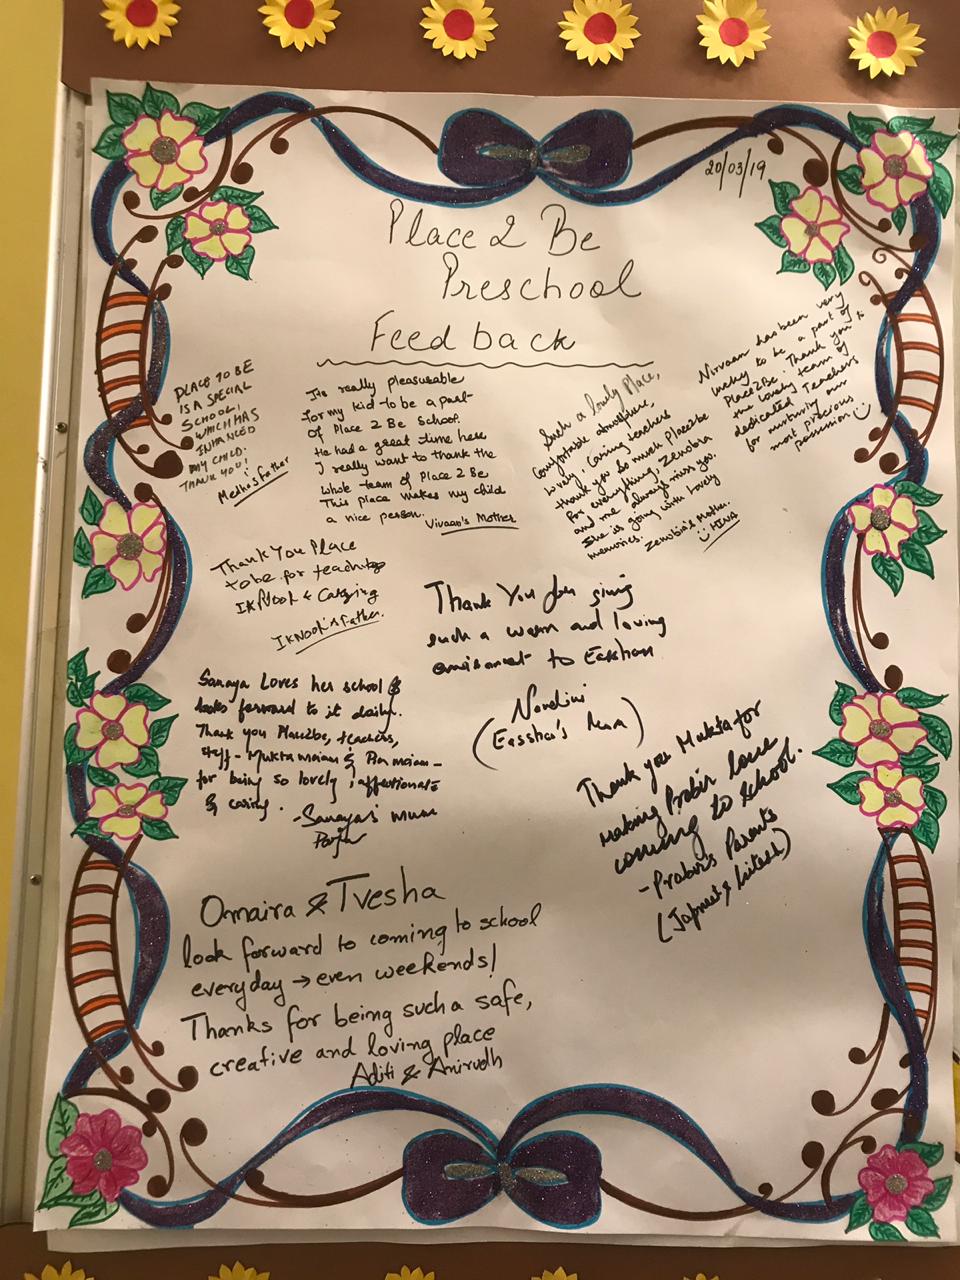 20/03/19
Place 2 Be
Preschool
Feedback
PLACE TO BE
IS A SPECIAL
SCHOOL!
WHICH HAS
INHANCED
MY CHILD.
THANK YOU!
Medha's Father
Its really pleasurable
for my kid to be a part
of Place 2 Be School.
He had a great time here
I really want to thank the
whole team of Place 2 Be
This place makes my child
a nice person.
Vivaan's Mother
Such a lovely Place,
Comfortable atmosphere,
lovely, caring teachers
thank you so much Place2be
for everything, Zenobia
and me always miss you.
She is going with lovely
memories.
Zenobia's Mother
HINA
Nirvaan has been very
lucky to be a part of
Place2Be. Thank you to
the lovely team of
dedicated Teachers
for nurturing our
most precious
possession
Thank You Place
to be for teaching
IKNook & Carrying
IKNook's Father.
Thank You for giving
such a warm and loving
to Eesshan
(Eesshan's Mum)
Sanaya Loves her school &
looks forward to it daily.
Thank you Place2be, teachers,
staff - Mukta maiam & maiam -
for being so lovely, affectionate
& caring.
- Sanaya's mum
Thank you Mukta for
making Prabir love
coming to school.
- Prabir's Parents
(Japneet & Jitesh)
Omaira & Tvesha
look forward to coming to school
everyday → even weekends!
Thanks for being such a safe,
creative and loving place
Aditi & Anirudh